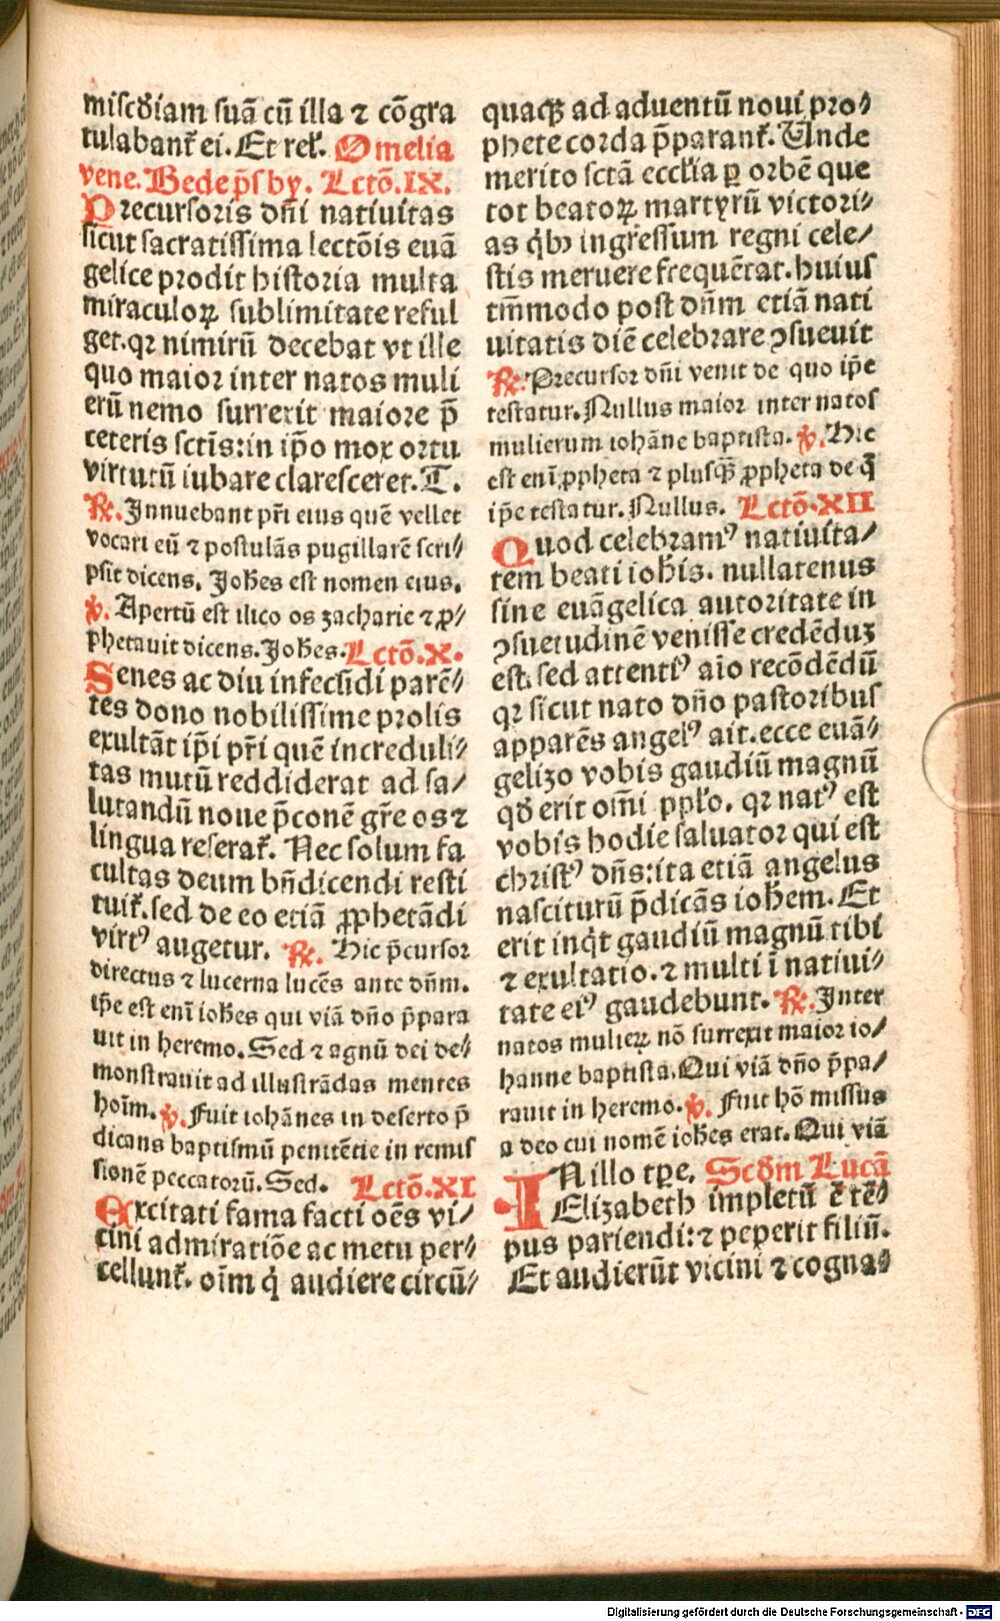 miscðiam suã cũ illa ⁊ cõgra
tulabant᷑ ei. Et relꝗ. Omelia
vene. Bede p̃sby. Lctõ.IX.
Precursoris dñi natiuitas
sicut sacratissima lectõis euã
gelice prodit historia multa
miraculoꝝ sublimitate reful
get. qꝛ nimirũ decebat vt ille
quo maior inter natos muli
erũ nemo surrexit maiore p̃
ceteris sctĩs: in ip̃o mox ortu
virtutũ iubare claresceret. T.
℞. Innuebant pr̃i eius quẽ vellet
vocari eũ ⁊ postulãs pugillarẽ scri⸗
psit dicens. Joh̃es est nomen eius.
℣. Apertũ est ilico os zacharie ⁊ ꝓ⸗
phetauit dicens. Joh̃es. Lctõ.X.
Senes ac diu infecũdi parẽ⸗
tes dono nobilissime prolis
exultãt ip̃i pr̃i quẽ increduli⸗
tas mutũ reddiderat ad sa⸗
lutandũ noue p̃conẽ gr̃e os ⁊
lingua reserat᷑. Nec solum fa
cultas deum bñdicendi resti
tuit᷑. sed de eo etiã ꝓphetãdi
virtꝰ augetur. ℞. Hic p̃cursor
directus ⁊ lucerna lucẽs ante dñm.
ip̃e est enĩ ioh̃es qui viã dño p̃para
uit in heremo. Sed ⁊ agnũ dei de⸗
monstrauit ad illustrãdas mentes
hoĩm. ℣. Fuit iohãnes in deserto p̃
dicans baptismũ penitẽtie in remis
sionẽ peccatorũ. Sed. Lctõ.XI
Excitati fama facti oẽs vi⸗
cini admiratiõe ac metu per⸗
cellunt᷑. oĩm q̇ audiere circũ⸗
quaqꝫ ad aduentũ noui pro⸗
phete corda p̃parant᷑. Unde
merito sctã eccl̃ia ꝑ orbẽ que
tot beatoꝝ martyrũ victori⸗
as q̇bꝫ ingressum regni cele⸗
stis meruere frequẽtat. huius
tm̃modo post dñm etiã nati
uitatis diẽ celebrare ꝯsueuit
℞. Precursor dñi venit de quo ip̃e
testatur. Nullus maior inter natos
mulierum iohãne baptista. ℣. Hic
est enĩ ꝓpheta ⁊ plusqꝫ ꝓpheta de q̃
ip̃e testatur. Nullus. Lctõ.XII
Quod celebramꝰ natiuita⸗
tem beati ioh̃is. nullatenus
sine euãgelica autoritate in
ꝯsuetudinẽ venisse credẽduꝫ
est. sed attentiꝰ aĩo recõdẽdũ
qꝛ sicut nato dño pastoribus
apparẽs angelꝰ ait. ecce euã⸗
gelizo vobis gaudiũ magnũ
qð erit om̃i pp̃lo. qꝛ natꝰ est
vobis hodie saluator qui est
christꝰ dñs: ita etiã angelus
nasciturũ p̃dicãs ioh̃em. Et
erit inq̇t gaudiũ magnũ tibi
⁊ exultatio. ⁊ multi ĩ natiui⸗
tate eiꝰ gaudebunt. ℞. Inter
natos mulieꝝ nõ surrexit maior io⸗
hanne baptista. Qui viã dño p̃pa⸗
rauit in heremo. ℣. Fuit hõ missus
a deo cui nomẽ ioh̃es erat. Qui viã
IN illo tp̃e. Scðm Lucã
Elizabeth impletũ ẽ tẽ⸗
pus pariendi: ⁊ peperit filiũ.
Et audierũt vicini ⁊ cogna⸗
Digitalisierung gefördert durch die Deutsche Forschungsgemeinschaft - DFG